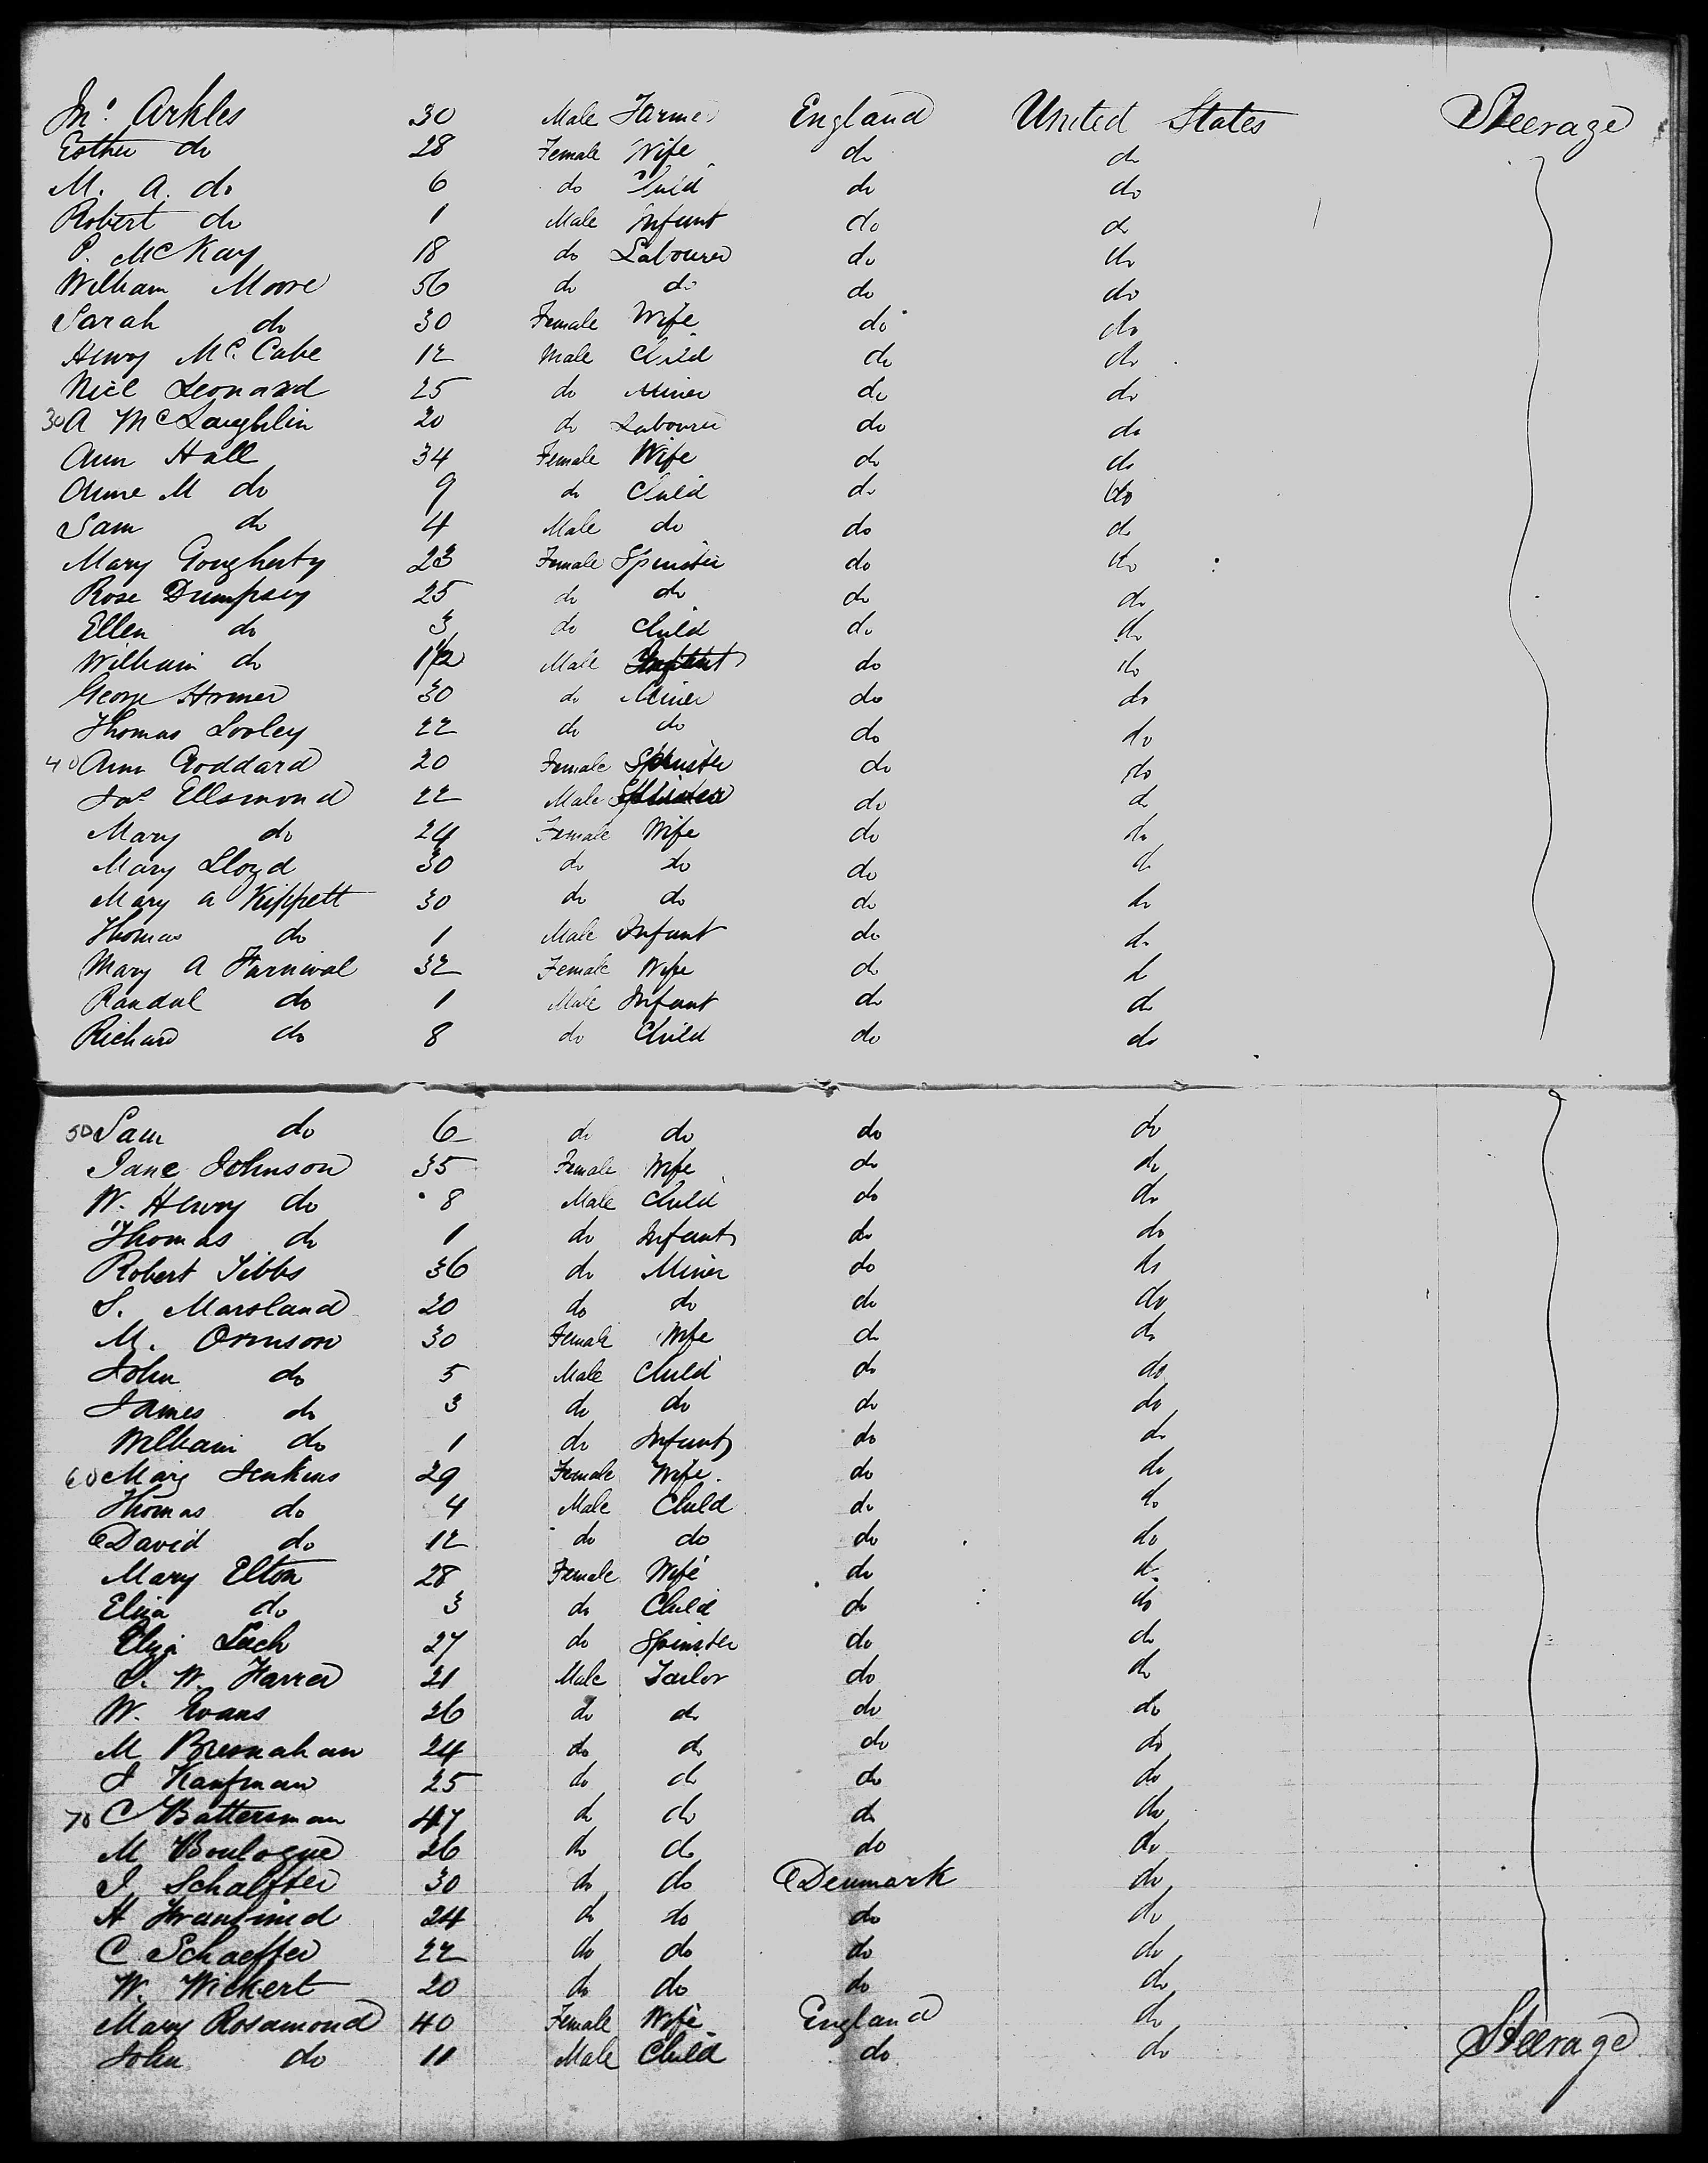 Jno. Arkles 30 Male Farmer England United States Steerage
Esther do 28 Female Wife do do
M. A. do 6 do Child do do
Robert do 1 Male Infant do do
P. McKay 18 do Labourer do do
William Moore 56 do do do do
Sarah do 30 Female Wife do do
Henry McCabe 12 Male Child do do
Neil Leonard 25 do Miner do do
30 A McLaughlin 20 do Labourer do do
Ann Hall 34 Female Wife do do
Anne M do 9 do Child do do
Sam do 4 Male do do do
Mary Gougherty 23 Female Spinster do do
Rose Dumpsey 25 do do do do
Ellen do 3 do Child do do
William do 1 1/2 Male Infant do do
George 30 do Miner do do
Thomas Looley 22 do do do do
40 Ann Goddard 20 Female Spinster do do
Jas Ellsmond 22 Male do do
Mary do 24 Female Wife do do
Mary Lloyd 30 do do do do
Mary A Kippett 30 do do do do
Thomas do 1 Male Infant do do
Mary A Farnival 32 Female Wife do do
Randal do 1 Male Infant do do
Richard do 8 do Child do do
50 Sam do 6 do do do do
Jane Johnson 35 Female Wife do do
W. Henry do 8 Male Child do do
Thomas do 1 do Infant do do
Robert Tibbs 36 do Miner do do
S. Marsland 20 do do do do
M. Ormson 30 Female Wife do do
John do 5 Male Child do do
James do 3 do do do do
William do 1 do Infant do do
60 Mary Jenkins 29 Female Wife do do
Thomas do 4 Male Child do do
David do 12 do do do do
Mary Elton 28 Female Wife do do
Eliza do 3 do Child do do
Eliza Lach 27 do Spinster do do
S. W. Farrer 21 Male Tailor do do
W. Evans 26 do do do do
M Bresnahan 24 do do do do
J Kaufman 25 do do do do
70 C Battersman 47 do do do do
M Boulogne 26 do do do do
J. Schaffter 30 do do Denmark do
H 24 do do do do
C Schaeffer 22 do do do do
W. Wickert 20 do do do do
Mary Rosamond 40 Female Wife England do
John do 11 Male Child do do Steerage